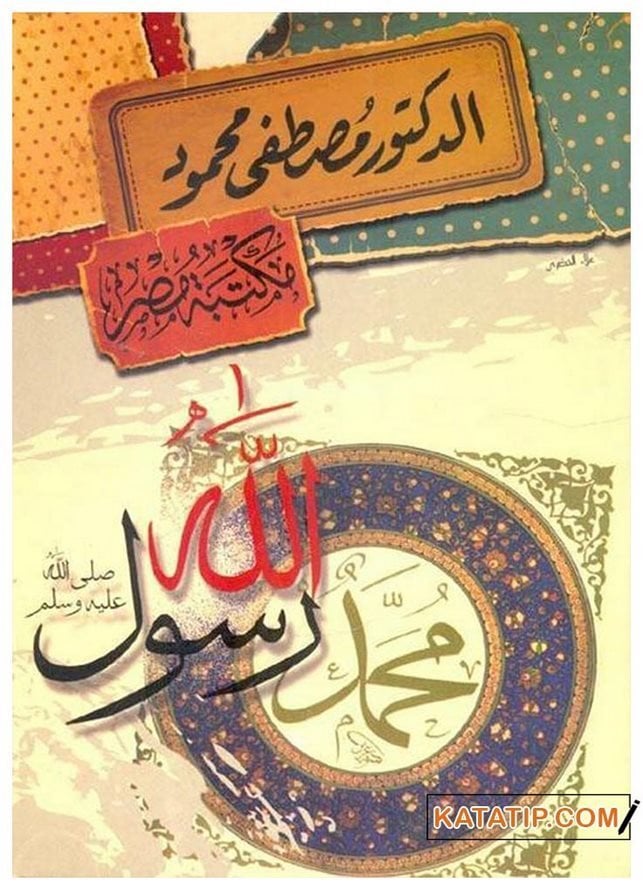 الدكتور مصطفى محمود
مكتبة مصر
علاء الخضري
الله
رسول
صلى الله
عليه وسلم
محمد
KATATIP.COM